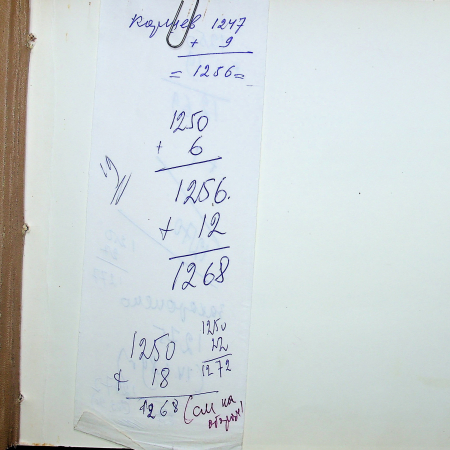 1247
+ 9
= 1256 =
1250
+ 6
1256.
+ 12
1268
1250
+ 18
1268
1250
22
1272
(см на